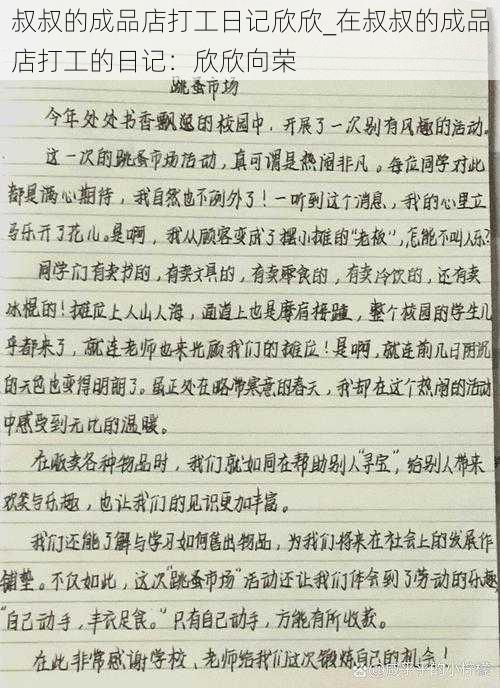 叔叔的成品店打工日记欣欣_在叔叔的成品
店打工的日记：欣欣向荣
跳蚤市场
今年处处书香飘逸的校园中，开展了一次别有风趣的活动。
这一次的跳蚤市场活动，真可谓是热闹非凡。每位同学对此
都是满心期待，我自然也不例外了！一听到这个消息，我的心里立
马乐开了花儿。是啊，我从顾客变成了摆小摊的“老板”，怎能不叫人乐？
同学们有卖书的，有卖文具的，有卖零食的，有卖冷饮的，还有卖
冰棍的！摊位上人山人海，通道上也是摩肩接踵，整个校园的学生几
乎都来了，就连老师也来光顾我们的摊位！是啊，就连前几日阴沉
的天色也变得明朗了。虽正处在略带寒意的春天，我却在这个热闹的活动
中感受到无比的温暖。
在贩卖各种物品时，我们就如同在帮助别人“寻宝”，给别人带来
欢笑与乐趣，也让我们的见识更加丰富。
我们还能了解与学习如何售出物品，为我们将来在社会上的发展作
铺垫。不仅如此，这次“跳蚤市场”活动还让我们体会到了劳动的乐趣
“自己动手，丰衣足食。”只有自己动手，方能有所收获。
在此非常感谢学校、老师给我们这次锻炼自己的机会！